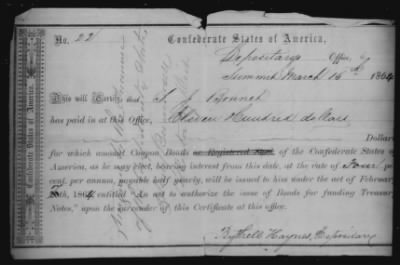 Confederate States of America.
No. 22
Confederate States of America,
Depositary Office,
Summit March 16th 1864
This will Certify, that S. J. Bonner
has paid in at this Office, Eleven Hundred dollars
Dollars
for which amount Coupon Bonds or Registered Stock, of the Confederate States
America, as he may elect, bearing interest from this date, at the rate of Four p
cent. per annum, payable half yearly, will be issued to him under the act of Februar
20th, 1864 entitled "An act to authorize the issue of Bonds for funding Treasur
Notes," upon the surrender of this Certificate at this office.
Bythell Haynes, Depositary